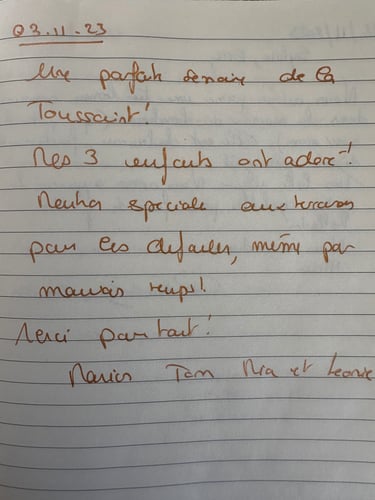 03.11.23
Une parfaite semaine de la
Toussaint!
Mes 3 enfants ont adoré!
Mention spéciale aux terrasses
pour les , même par
mauvais temps!
Merci pour tout!
Marion Tom Mia et Leonie